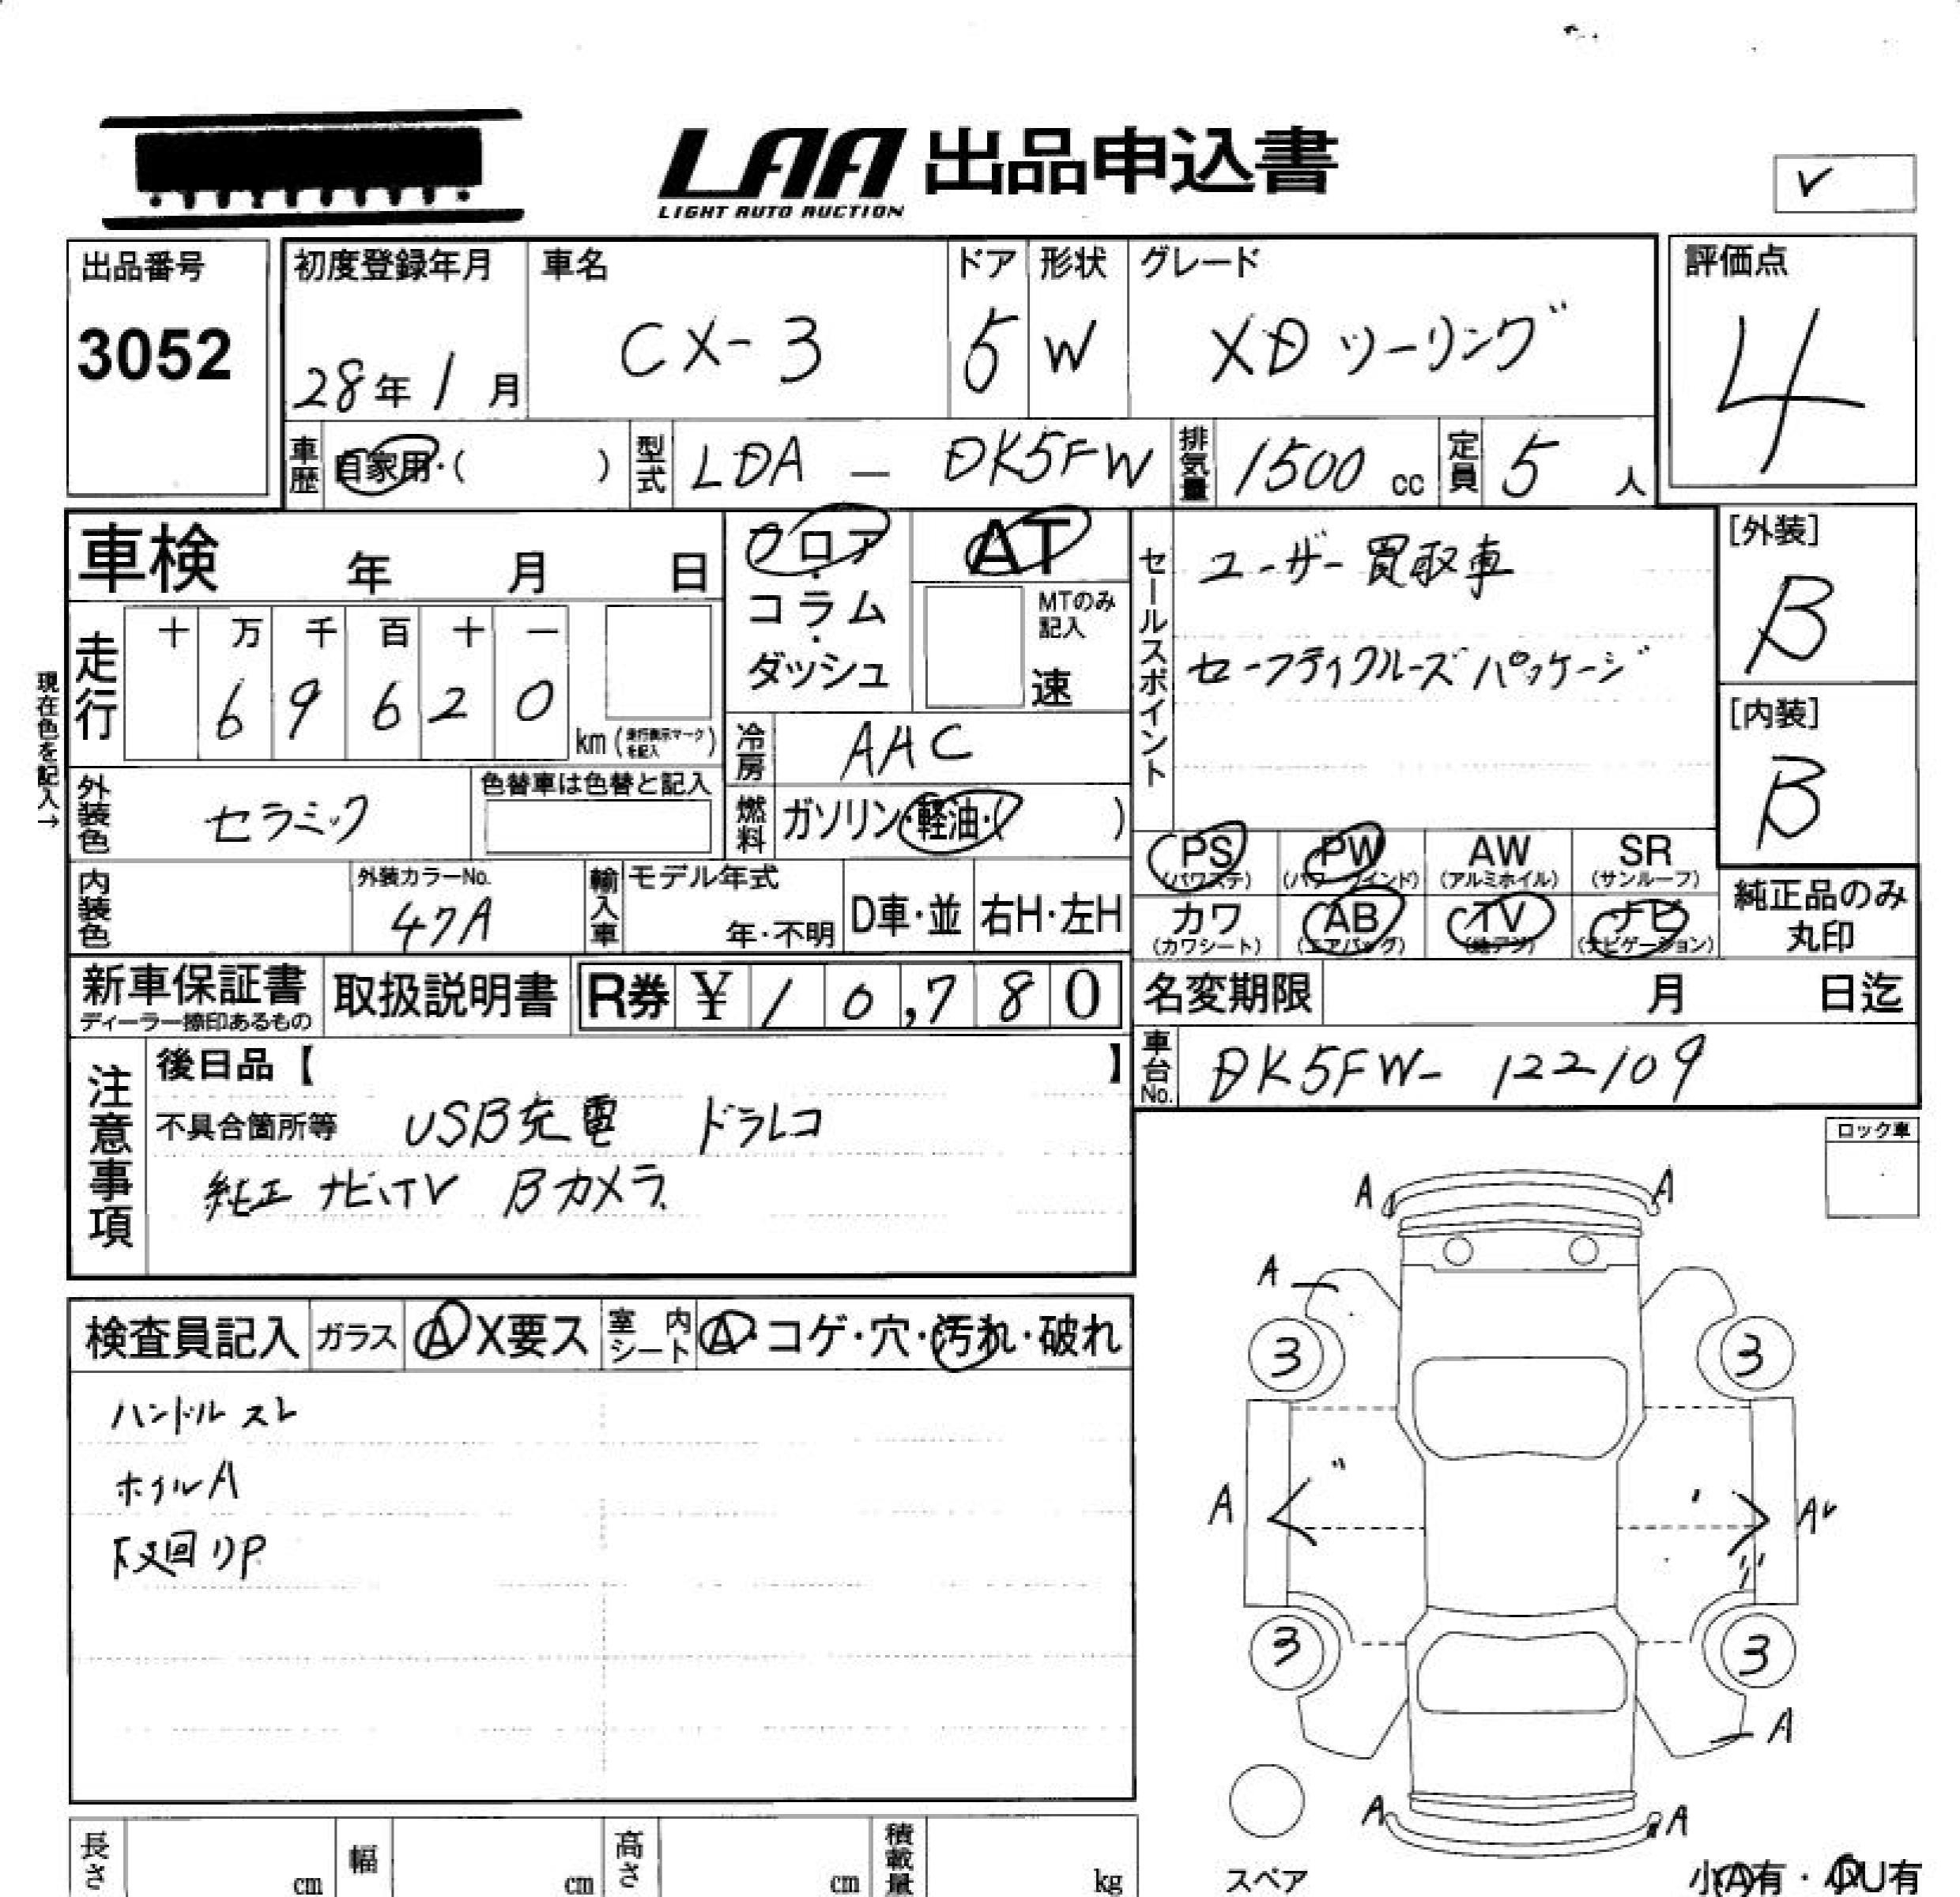 LAA 出品申込書
LIGHT AUTO AUCTION
✓
出品番号
3052
初度登録年月
28年1月
車名
CX-3
ドア
5
形状
W
グレード
XDツーリング
評価点
4
車歴
自家用・( )
型式
LDA - DK5FW
排気量
1500 cc
定員
5人
車検 年 月 日
フロア・コラム・ダッシュ
AT
MTのみ記入
速
セールスポイント
ユーザー買取車
セーフティクルーズパッケージ
[外装]
B
[内装]
B
現在色を記入→
走行
十 万 千 百 十 一
6 9 6 2 0
km (走行表示マークを記入)
冷房
AAC
外装色
セラミック
色替車は色替と記入
燃料
ガソリン・軽油・( )
PS (パワステ)
PW (パワーウインド)
AW (アルミホイル)
SR (サンルーフ)
カワ (カワシート)
AB (エアバッグ)
TV (地デジ)
ナビ (ナビゲーション)
純正品のみ丸印
内装色
外装カラーNo.
47A
輸入車
モデル年式
年・不明
D車・並
右H・左H
新車保証書
ディーラー捺印あるもの
取扱説明書
R券 ¥ 10,780
名変期限 月 日迄
車台No.
DK5FW- 122109
注意事項
後日品【 】
不具合箇所等 USB充電 ドラレコ
純正ナビ.TV Bカメラ
ロック車
検査員記入
ガラス
A X要ス
室内シート
A・コゲ・穴・汚れ・破れ
ハンドルスレ
ホイルA
下回りP
A A
A
3 3
A A
3 3
A
A A
スペア
小A有・小U有
長さ cm
幅 cm
高さ cm
積載量 kg